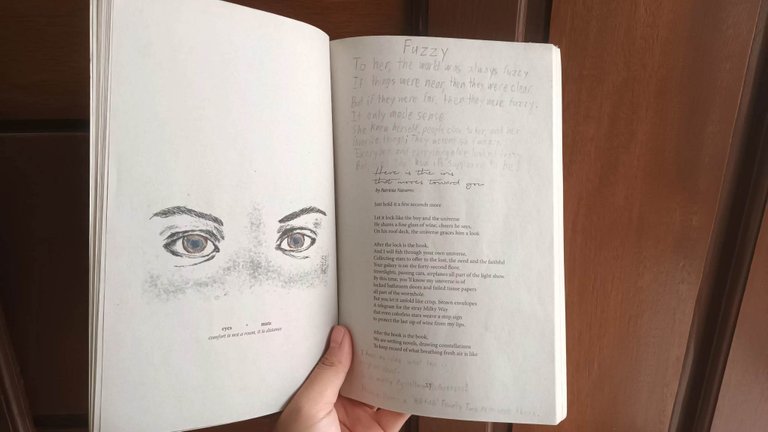 eyes - matz
comfort is not a room, it is distance
Fuzzy
To her, the world was always fuzzy
If things were near, then they were clear.
But if they were far, then they were fuzzy.
It only made sense
She knew herself, people close to her, and her
favorite things; They weren't so
Here is the iris
that moves toward you
by Patricia Navarro
Just hold it a few seconds more
Let it look like the boy and the universe
He shares a fine glass of wine, cheers he says,
On his roof deck, the universe graces him a look
After the lock is the hook,
And I will fish through your own universe,
Collecting stars to offer to the lost, the need and the faithful
Your galaxy is on the forty-second floor,
Streetlights, passing cars, airplanes all part of the light show.
By this time, you'll know my universe is of
locked bathroom doors and failed tissue papers
all part of the wormhole.
But you let it unfold like crisp, brown envelopes
A telegram for the stray Milky Way
that even colorless stars weave a stop sign
to protect the last sip of wine from my lips.
After the hook is the book,
We are writing novels, drawing constellations
To keep record of what breathing fresh air is like